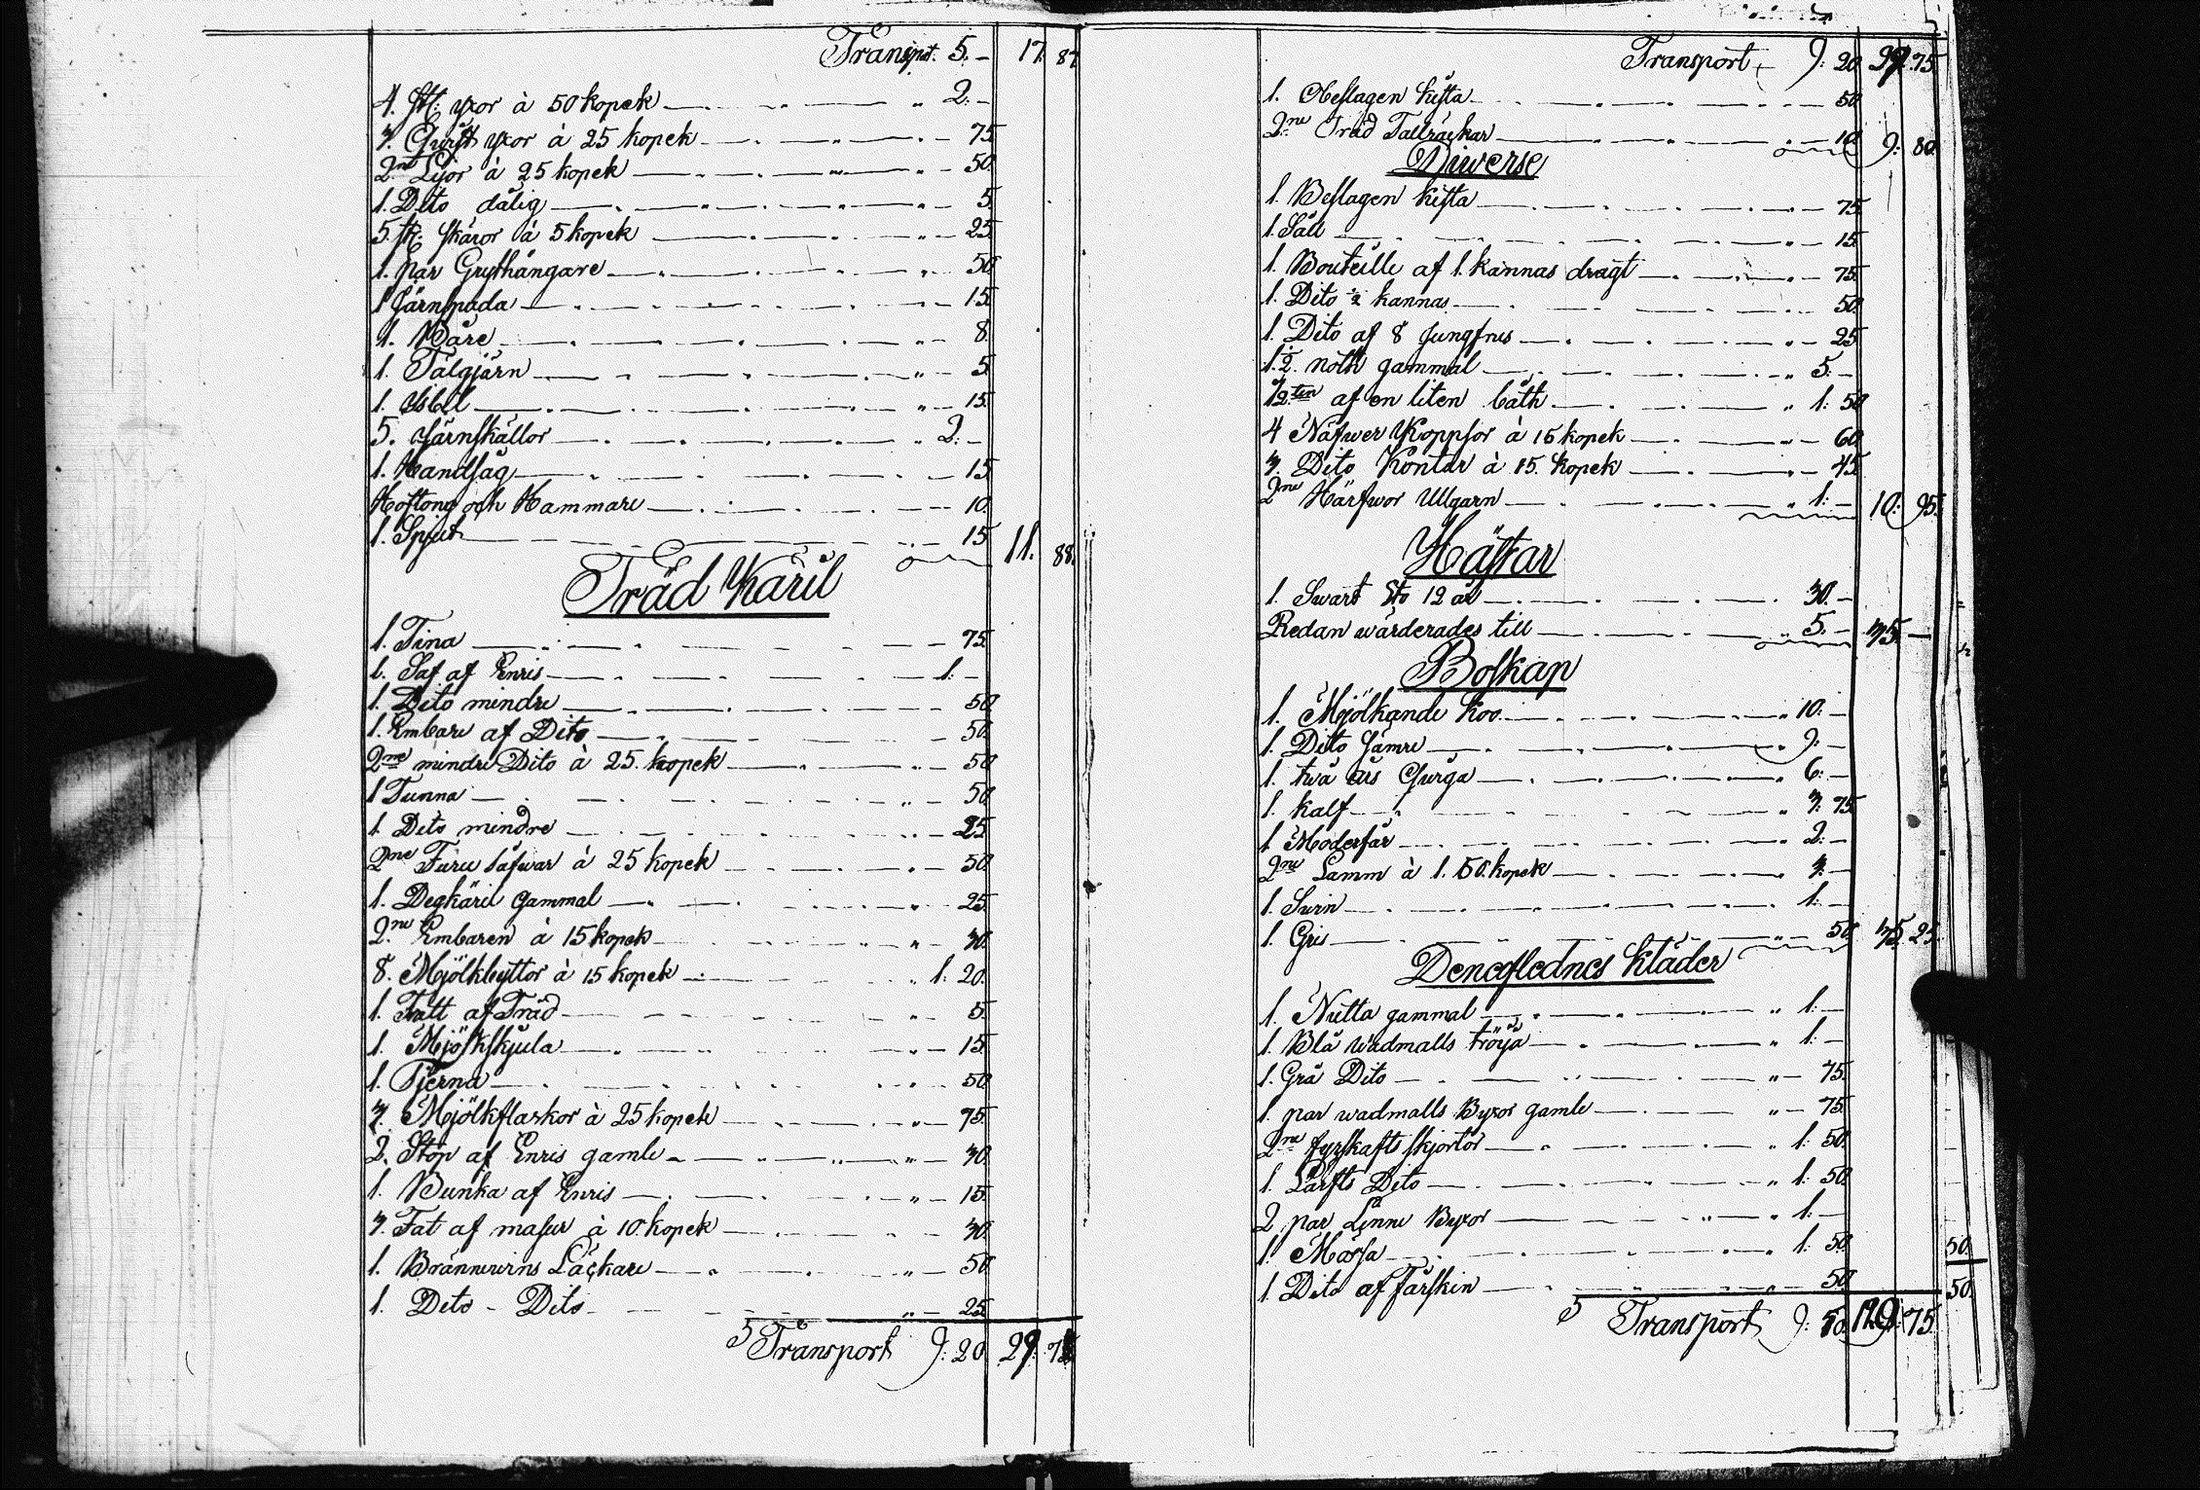 Transport. 5. – 17. 87.
4. st: yxor à 50 kopek 2. –
3. Gurst yxor à 25 kopek 75.
2ne Lijor à 25 kopek 50.
1. Dito dålig 5.
5. st: skäror à 5 kopek 25.
1. par Grythängare 50
1 Järnspada 15
1. Nåre 8.
1. Täljärn 5
1. 15.
5. Järnskållor 2. –
1. Handsåg 15
Hoftong och Hammare 10.
1. Spjut 15 11. 88.
Träd Käril
1. Tina 75
1. Saf af Enris 1. –
1. Dito mindre 50
1. Embare af Dito 50.
2ne mindre Dito à 25. kopek 50
1 Tunna 50
1. Dito mindre 25
2ne Furu Såfwar à 25 kopek 50.
1. Degkäril gammal 25.
2ne Embaren à 15 kopek 30.
8. Mjölkbyttor à 15 kopek 1. 20.
1. Tratt af Träd 5.
1. Mjölkskjula 15.
1. Tjerna 50
3. Mjölkflaskor à 25 kopek 75.
2. Stop af Enris gamle 30.
1. Bunka af Enris 15.
3. Fat af masur à 10. kopek 30.
1. Brännwins Läckare 50
1. Dito – Dito 25
Transport 9: 20 29. 75
Transport 9: 20 29. 75
1. Beslagen kista 50
2ne Träd Tallrickar 10 9. 80.
Diwerse
1. Beslagen kista 75.
1. Såll 15.
1. Bouteille af 1. kannas dragt 75.
1. Dito ½ kannas 50.
1. Dito af 8 Jungfrus 25
1. 2. noth gammal 5. –
½ten af en liten båth 1: 50
4 Näfwer Koppsor à 15 kopek 60
3. Dito Kontar à 15. kopek 45
2ne Härfwor Ullgarn 1: – 10. 95.
Hästar
1. Swart Sto 12 år 30. –
Redan wärderades till 5. – 35. –
Boskap
1. Mjölkande koo 10. –
1. Dito Jämre 9: –
1. twå års Qwiga 6: –
1. kalf 3: 75
1 Moderfår 2: –
2ne Lamm à 1. 50. kopek 3: –
1. Swin 1: –
1. Gris 50 35. 25.
Denaflednes kläder
1. Nutta gammal 1: –
1. Blå wadmalls tröja 1: –
1. Grå Dito 75.
1. par wadmalls Byxor gamle 75.
2ne fyrskafts skjortor 1: 50.
1. Lärfts Dito 1: 50.
2 par Linne Byxor 1: –
1. Mössa 1: 50. 50.
1. Dito af Fårskin 50 50.
Transport 9: 50. 129: 75.